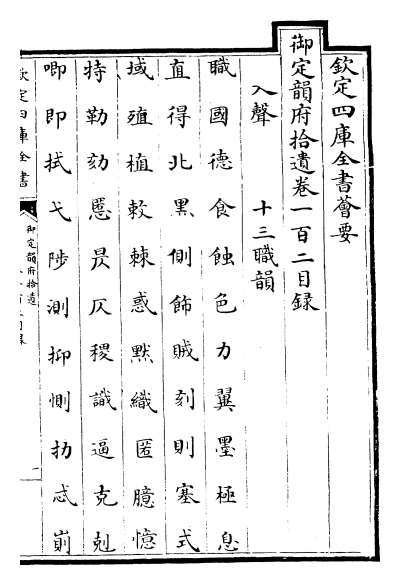 欽定四庫全書薈要
御定韻府拾遺卷一百二目録
入聲 十三職韻
職國德食蝕色力翼墨極息
直得北黑側飾賊刻則塞式
域殖植敕棘惑默織匿臆憶
特勒劾慝昃仄稷識逼克剋
唧即拭弋陟測抑惻扐忒崱
欽定四庫全書
御定韻府拾遺